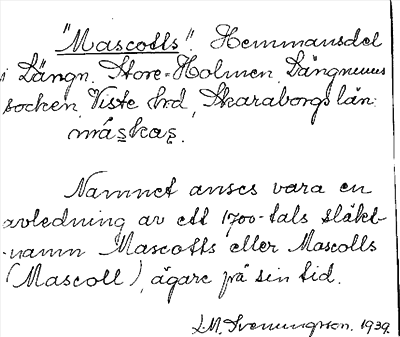 "Mascotts". Hemmansdel
i Längn. Store-Holmen, Längnums
socken, Viste hrd, Skaraborgs län.
måskas.
Namnet anses vara en
avledning av ett 1700-tals släkt-
namn Mascotts eller Mascolls
(Mascoll), ägare på sin tid.
L.M. Svenungsson. 1939.